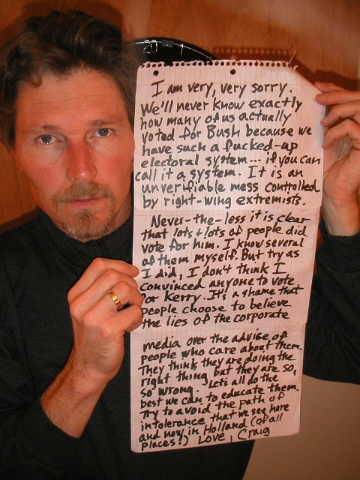 I am very, very sorry.
We'll never know exactly
how many of us actually
voted for Bush because we
have such a fucked-up
electoral system... if you can
call it a system. It is an
unverifiable mess controlled
by right-wing extremists.
Never-the-less it is clear
that lots & lots of people did
vote for him. I know several
of them myself. But try as
I did, I don't think I
convinced anyone to vote
for Kerry. It's a shame that
people choose to believe
the lies of the corporate
media over the advise of
people who care about them.
They think they are doing the
right thing, but they are so,
so wrong. Lets all do the
best we can to educate them.
Try to avoid the path of
intolerance that we see here
and now in Holland (of all
places!) Love, Craig